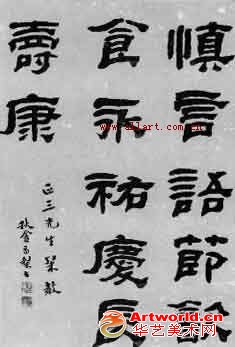 慎言語節飲
食永祐慶長
壽康
正三先生
www.allart.com.cn
Artworld.cn
华艺美术网